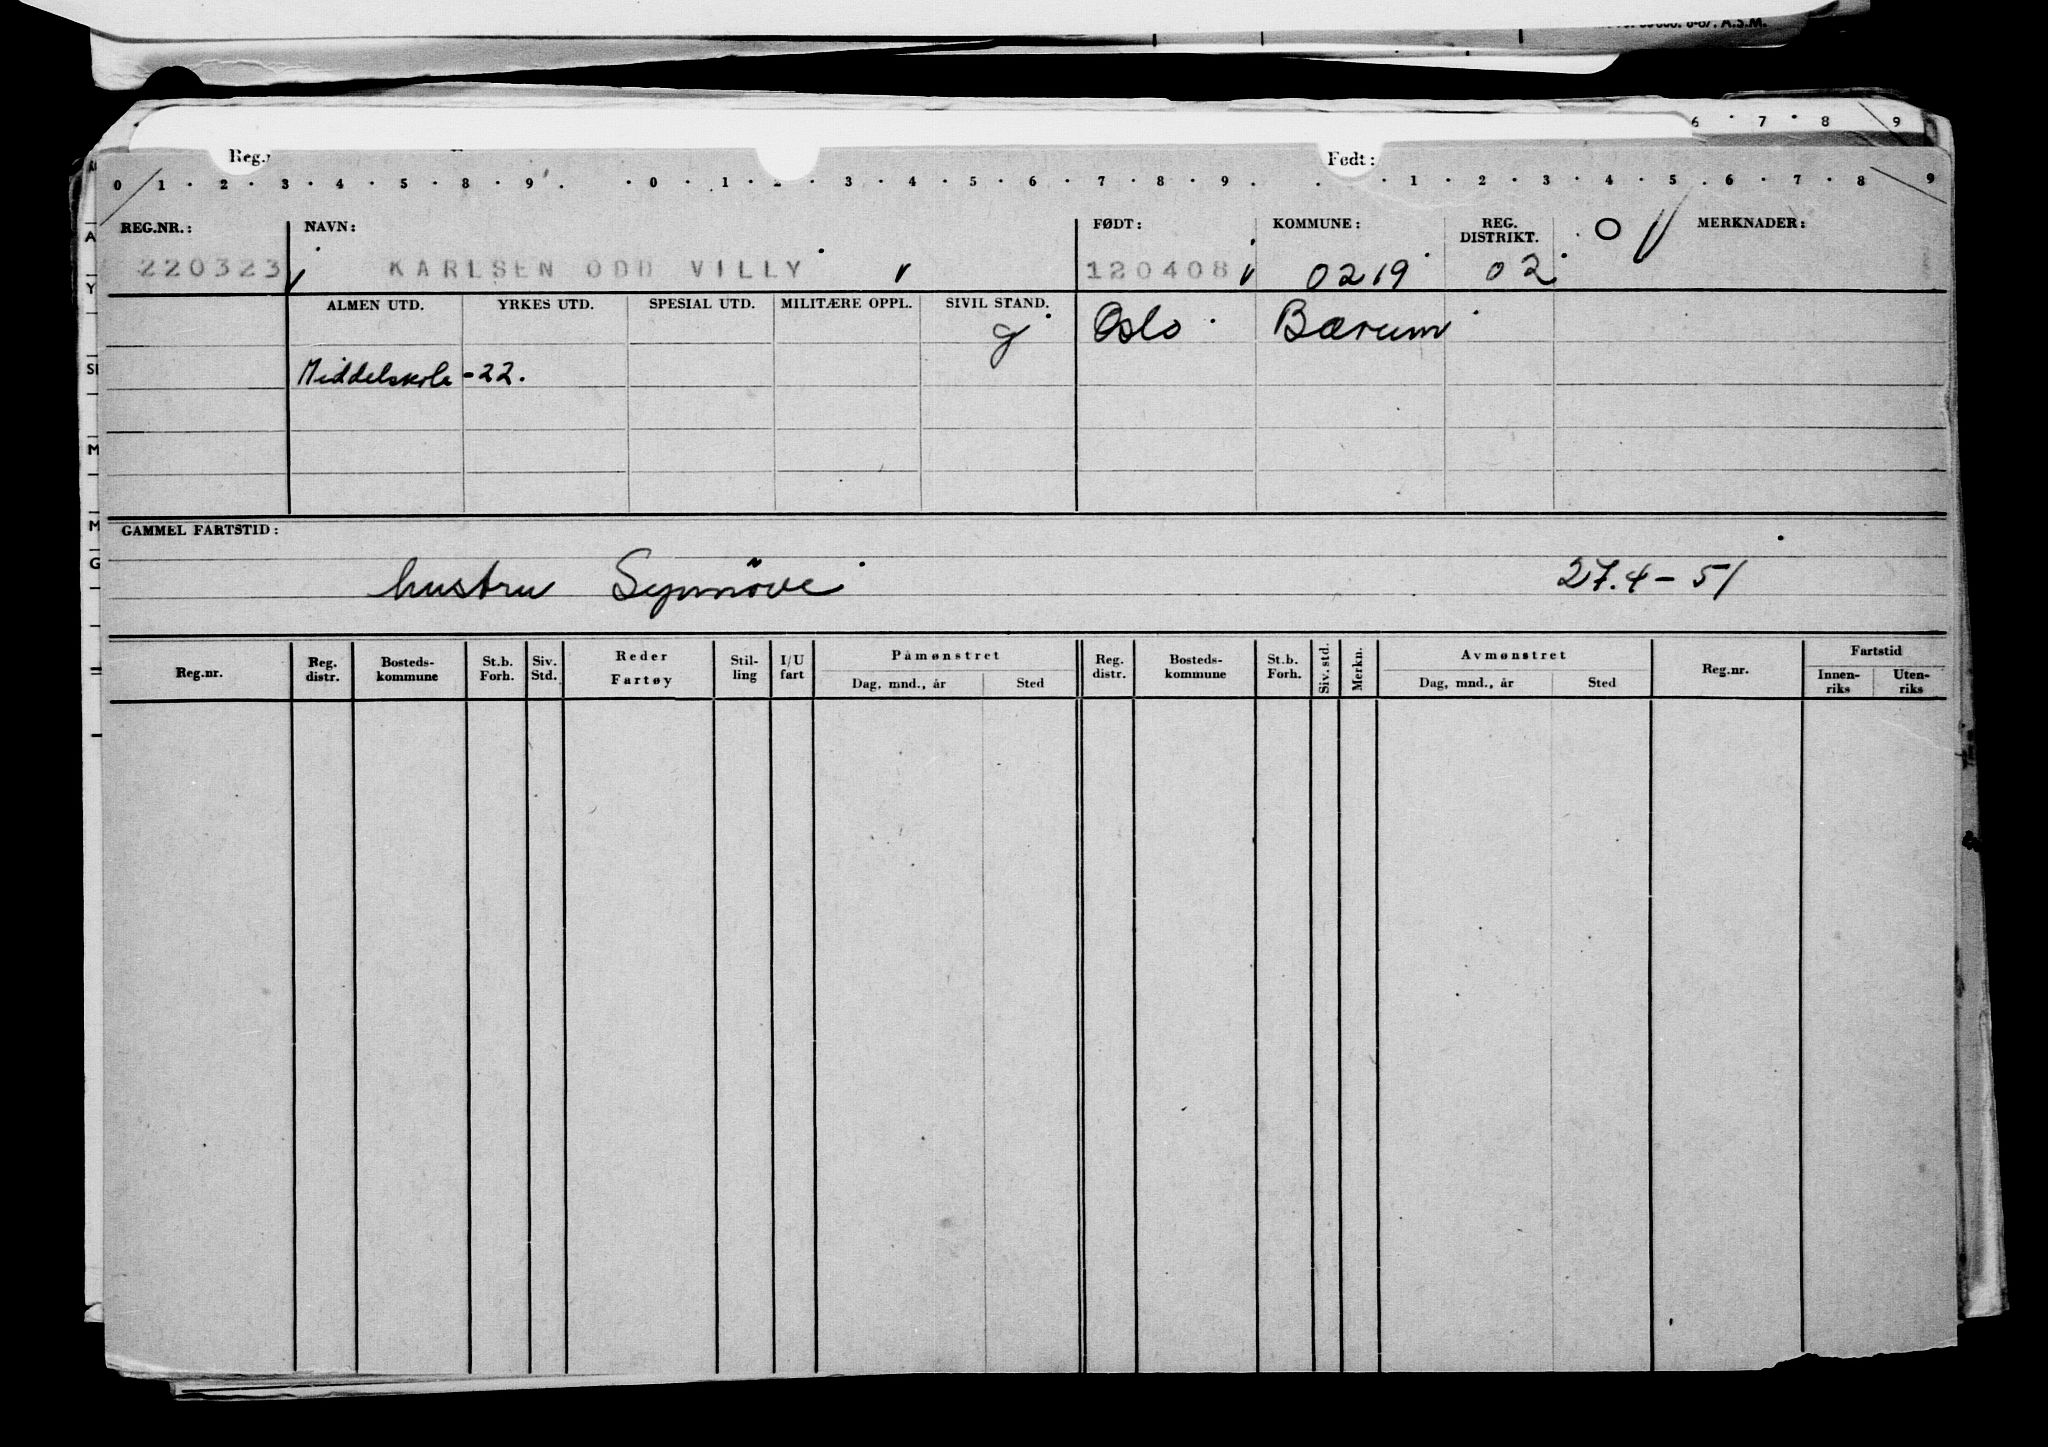 6 · 7 · 8 9
Reg. Født:
0 1 · 2 · 3 · 4 · 5 · 8 · 9 . · 0 · 1 · 2 · 3 · 4 · 5 · 6 · 7 · 8 · 9 . . · 1 · 2 · 3 · 4 · 5 . 6 · 7 · 8 9
REG.NR.: NAVN: FØDT: KOMMUNE: REG. DISTRIKT. MERKNADER:
220323 KARLSEN ODD VILLY 120408 0219 02
ALMEN UTD. YRKES UTD. SPESIAL UTD. MILITÆRE OPPL. SIVIL STAND.
g Oslo Bærum
Middelskole -22.
GAMMEL FARTSTID:
hustru Synnöve 27.4-51
Reg.nr. Reg. distr. Bosteds-kommune St.b. Forh. Siv. Std. Reder Fartøy Stil-ling I/U fart Påmønstret Reg. distr. Bosteds-kommune St.b. Forh. Siv. std. Merkn. Avmønstret Reg.nr. Fartstid
Dag, mnd., år Sted Dag, mnd., år Sted Innen-riks Uten-riks